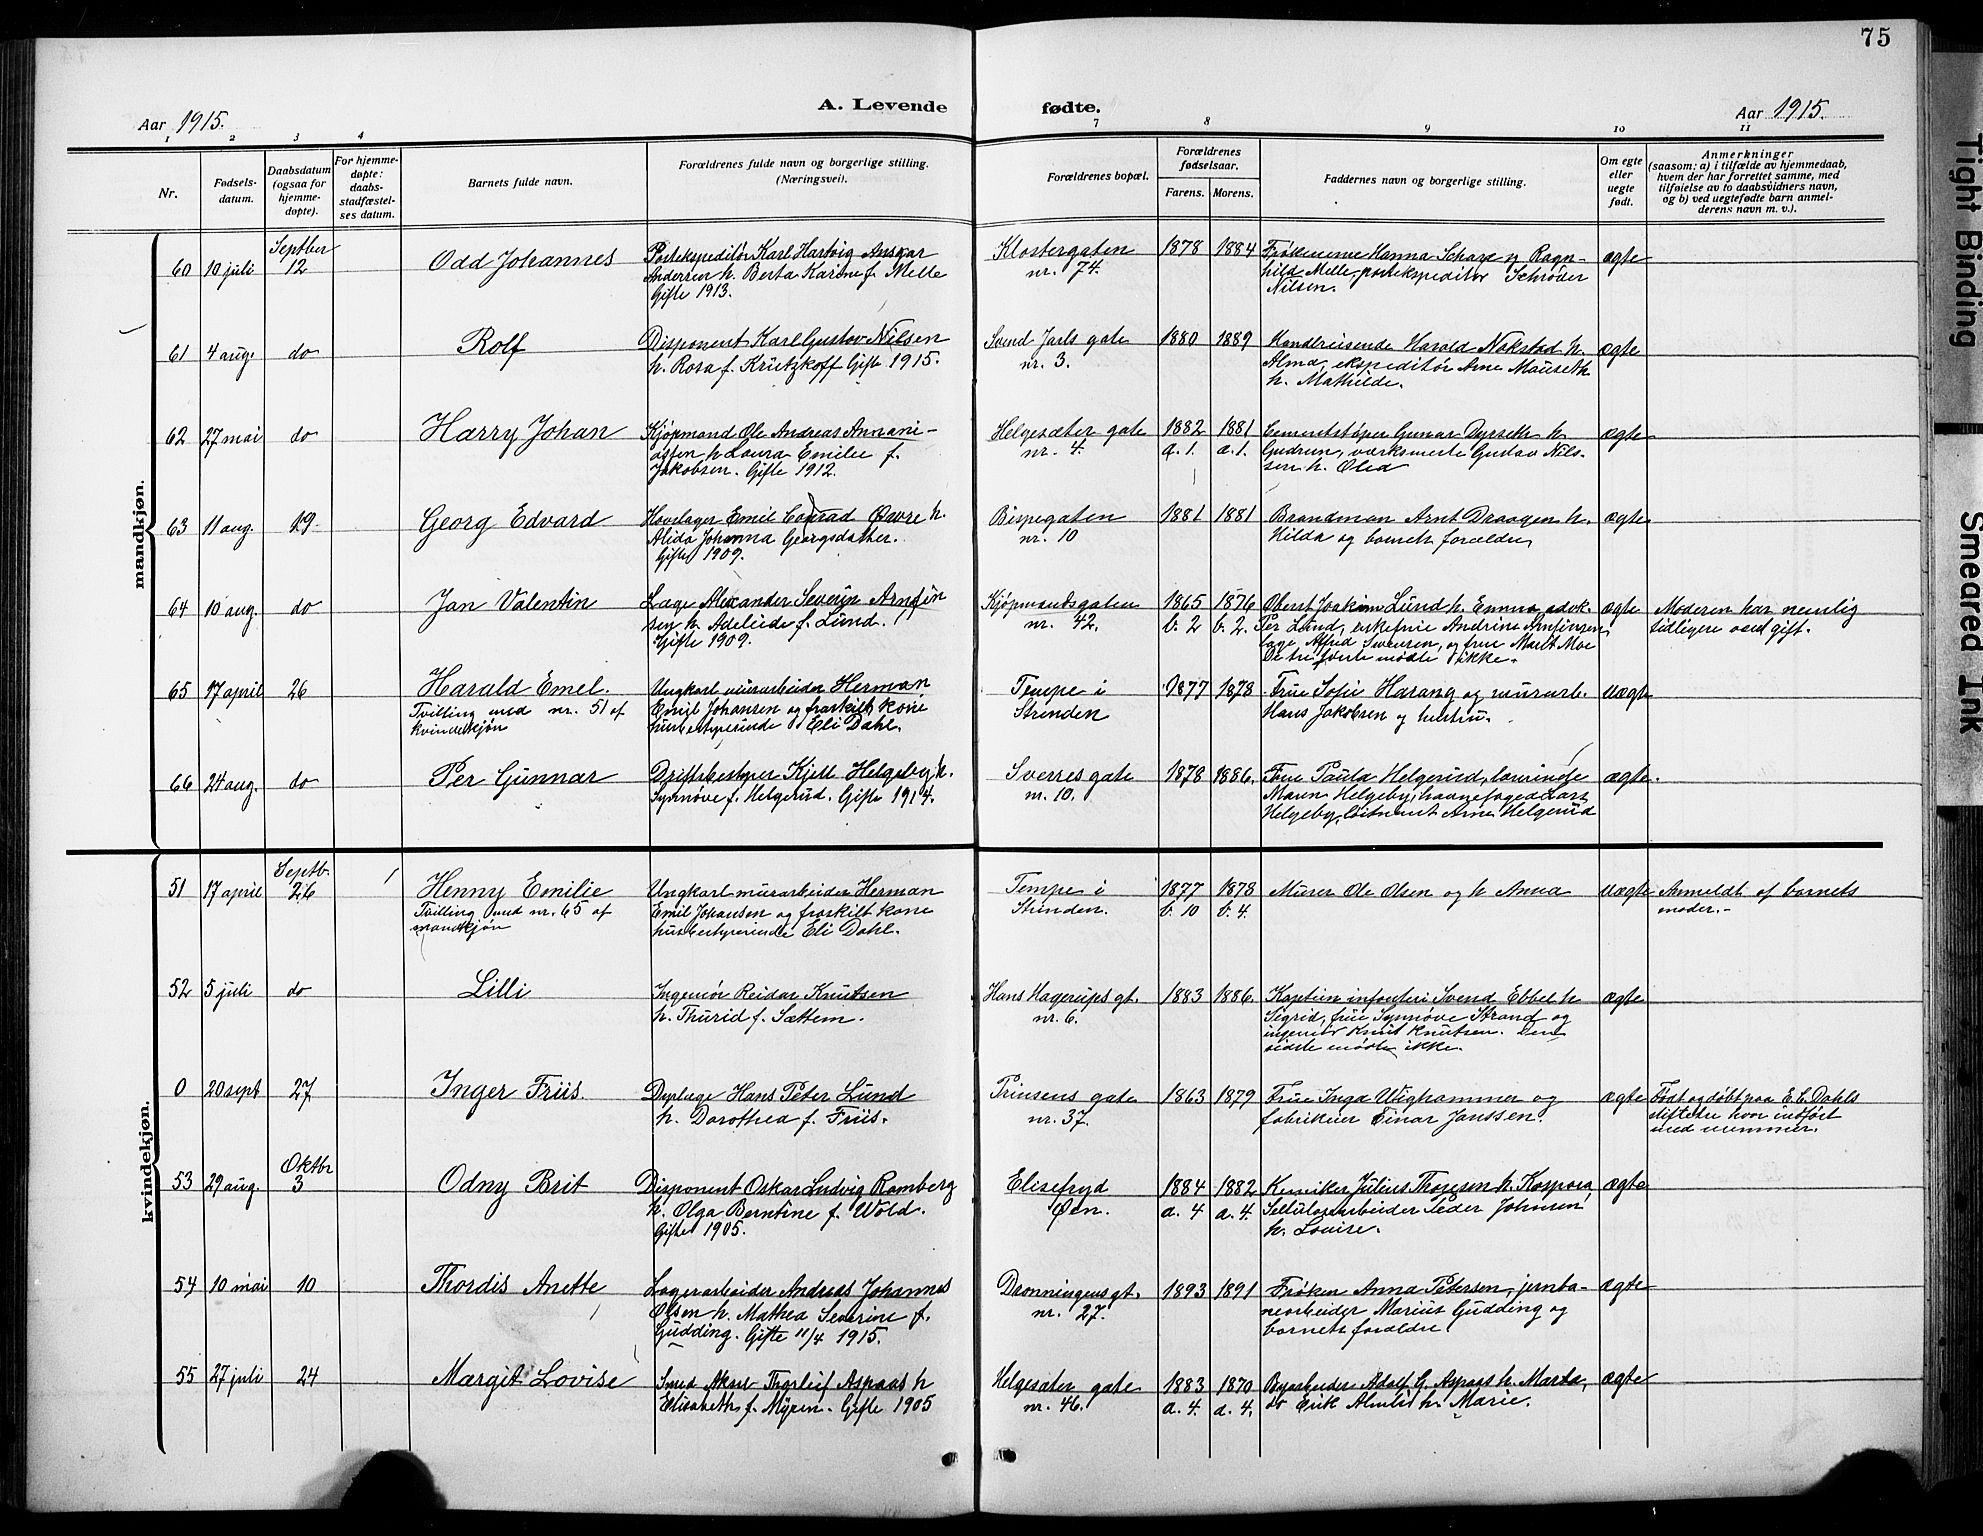 75
A. Levende fødte.
Aar 1915.
Aar 1915.
1 2 3 4 7 8 9 10 11
Nr.
Fødsels-
datum.
Daabsdatum
(ogsaa for
hjemme-
døpte).
For hjemme-
døpte:
daabs-
stadfæstel-
ses datum.
Barnets fulde navn.
Forældrenes fulde navn og borgerlige stilling.
(Næringsvei).
Forældrenes bopæl.
Forældrenes
fødselsaar.
Farens. Morens.
Faddernes navn og borgerlige stilling.
Om egte
eller
uegte
født.
Anmerkninger
(saasom: a) i tilfælde av hjemmedaab,
hvem der har forrettet samme, med
tilføielse av to daabsvidners navn,
og b) ved uegtefødte barn anmel-
derens navn m. v.).
mandkjøn.
60 10 juli Septber 12 Odd Johannes
Postekspeditør Karl Hartvig Ansgar
Andersen h. Berta Karine f. Melle
Gifte 1913.
Klostergaten
nr. 74.
1878 1884
Frøknerne Hanna Scharpe og Ragn-
hild Melle, postekspeditør Schrøder
Nilsen.
ægte
61 4 aug. do Rolf
Disponent Karl Gustav Nilsen
h. Rosa f. Krutzkoff Gifte 1915.
Svend Jarls gate
nr. 3.
1880 1889
Handlreisende Harald Nokstad h.
Alma, ekspeditør Arne Mauseth
h. Mathilde.
ægte
62 27 mai do Harry Johan
Kjøpmand Ole Andreas Annani-
assen h. Laura Emilie f.
Jakobsen. Gifte 1912.
Helgesæter gate
nr. 4.
1882 1881
a. 1. a. 1.
Cementstøper Gunar Dyrseth h.
Gudrun, værksmester Gustav Nils-
sen h. Olea
ægte
63 11 aug. 19 Georg Edvard
Hovslager Emil Conrad Øwre h.
Alida Johanna Georgsdatter.
Gifte 1909.
Bispegaten
nr. 10
1881 1881
Brandman Arnt Draagen h.
Hilda og barnets forældre
ægte
64 10 aug. do Jan Valentin
Læge Alexander Severin Arnfin
sen h. Adeleide f. Lund.
Gifte 1909.
Kjøpmandsgaten
nr. 42.
1865 1876
b. 2 b. 2.
Oberst Joakim Lund h. Emma, advk.
Per Lund, enkefrue Andrine Arnfinsen
læge Alfred Svensen, og frue Marit Moe
De tre første mødte ikke.
ægte
Moderen har nemlig
tidligere været gift.
65 17 april 26 Harald Emil.
Tvilling med nr. 51 af
kvindekjøn
Ungkarl murarbeider Herman
Emil Johansen og fraskilt kone
husbestyrerinde Eli Dahl.
Tempe i
Strinden
1877 1878
Frue Sofie Harang og murarb.
Hans Jakobsen og hustru.
uægte
66 24 aug. do Per Gunnar
Driftsbestyrer Kjell Helgeby h.
Synnøve f. Helgerud. Gifte 1914.
Sverres gate
nr. 10.
1878 1886.
Frue Paula Helgerud, lærerinde
Maren Helgeby, havnefoged Lars
Helgeby, løitnant Arne Helgerud
ægte.
kvindekjøn.
51 17 april Septb. 26 Henny Emilie
Tvilling med nr. 65 af
mandkjøn
Ungkarl murarbeider Herman
Emil Johansen og fraskilt kone
husbestyrerinde Eli Dahl.
Tempe i
Strinden.
1877 1878
b. 10 b. 4.
Murer Ole Olsen og h. Anna
uægte
Anmeldt af barnets
moder.-
52 5 juli do Lilli
Ingeniør Reidar Knutsen
h. Thurid f. Sættem.
Hans Hagerups gt.
nr. 6.
1883 1886.
Kaptein infanteri Svend Ebbel h
Sigrid, frue Synnøve Strand og
ingeniør Knut Knutsen. Den
sidste mødte ikke.
ægte
0 20 sept 27 Inger Friis.
Dyrlæge Hans Peter Lund
h. Dorothea f. Friis.
Prinsens gate
nr. 37.
1863 1879
Frue Inga Wighammer og
fabrikeier Einar Janssen.
ægte
Født og døbt paa E. C. Dahls
stiftelse hvor indført
med nummer.
53 29 aug. Oktbr 3 Odny Brit
Disponent Oskar Ludvig Ramberg
h. Olga Berntine f. Wold.
Gifte 1905.
Elisefryd
Øen.
1884 1882
a. 4 a. 4.
Kemiker Julius Thoresen h.
Cellulosearbeider Peder Johnsen
h. Lovise.
ægte
54 10 mai 10 Thordis Anette
Lagerarbeider Andreas Johannes
Olsen h. Mathea Severine f.
Gudding. Gifte 11/4 1915.
Dronningens gt.
nr. 27.
1893 1891
Frøken Anna Petersen, jernba-
nearbeider Marius Gudding og
barnets forældre.
ægte
55 27 juli 24 Margit Lovise
Smed Akar Thorleif Aspaas h
Elisabeth f. Myren. Gifte 1905
Helgesæter gate
nr. 46.
1883 1870
a. 4. a. 4.
Byarbeider Adolf G. Aspaas h. Marta,
do Erik Almlid h. Marie.
ægte
Tight Binding
Smeared Ink